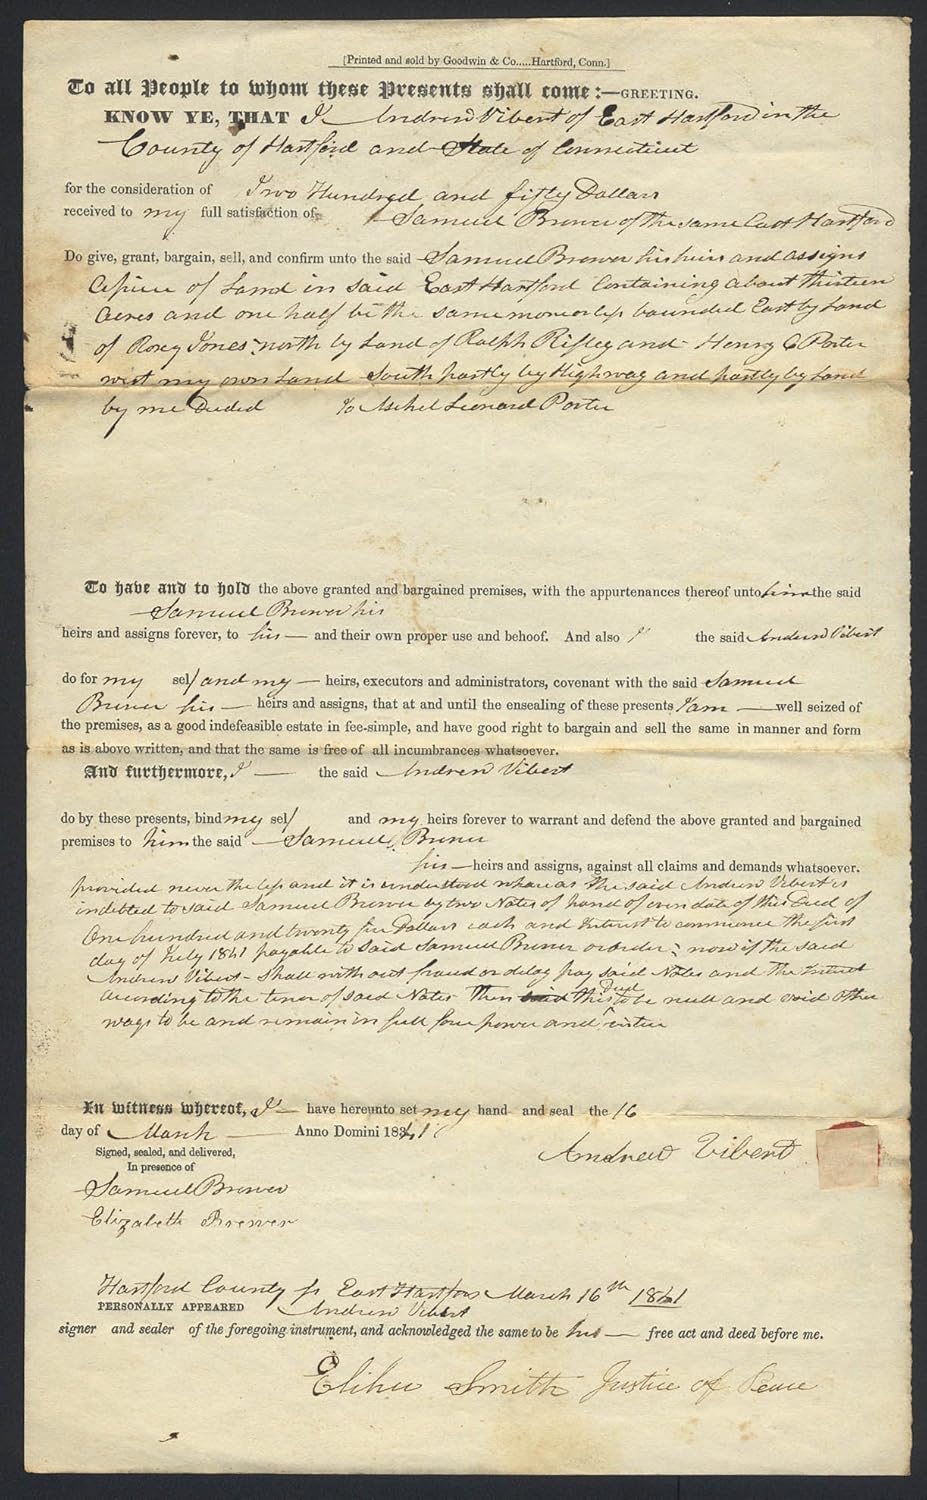 [Printed and sold by Goodwin & Co.....Hartford, Conn.]
To all People to whom these Presents shall come:—GREETING.
KNOW YE, THAT I Andrew Vibert of East Hartford in the
County of Hartford and State of Connecticut
for the consideration of Two Hundred and fifty Dollars
received to my full satisfaction of Samuel Brewer of the same East Hartford
Do give, grant, bargain, sell, and confirm unto the said Samuel Brewer his heirs and assigns
A piece of Land in said East Hartford Containing about thirteen
Acres and one half be the same more or less bounded East by Land
of Roxy Jones north by Land of Ralph Risley and Henry C Porter
west my own Land South partly by Highway and partly by Land
by me Deeded to Ashel Leonard Porter
To have and to hold the above granted and bargained premises, with the appurtenances thereof unto him the said
Samuel Brewer his
heirs and assigns forever, to his — and their own proper use and behoof. And also I the said Andrew Vibert
do for my self and my — heirs, executors and administrators, covenant with the said Samuel
Brewer his — heirs and assigns, that at and until the ensealing of these presents I am — well seized of
the premises, as a good indefeasible estate in fee-simple, and have good right to bargain and sell the same in manner and form
as is above written, and that the same is free of all incumbrances whatsoever.
And furthermore, I — the said Andrew Vibert
do by these presents, bind my self and my heirs forever to warrant and defend the above granted and bargained
premises to him the said Samuel Brewer
his — heirs and assigns, against all claims and demands whatsoever.
provided never the less and it is understood whare as the said Andrew Vibert is
indebted to said Samuel Brewer by two Notes of hand of even date of this Deed of
One hundred and twenty five Dollars each and Interest to commence the first
day of July 1841 payable to said Samuel Brewer or order; now if the said
Andrew Vibert Shall with out fraud or delay pay said Notes and the Interest
According to the tenor of said Notes then said this Deed to be null and void other
ways to be and remain in full force power and virtue
In witness whereof, I — have hereunto set my hand and seal the 16
day of March — Anno Domini 1841
Signed, sealed, and delivered,
In presence of
Andrew Vibert
Samuel Brewer
Elizabeth Brewer
Hartford County ss East Hartford March 16th 1841
PERSONALLY APPEARED Andrew Vibert
signer and sealer of the foregoing instrument, and acknowledged the same to be his — free act and deed before me.
Elihu Smith Justice of Peace